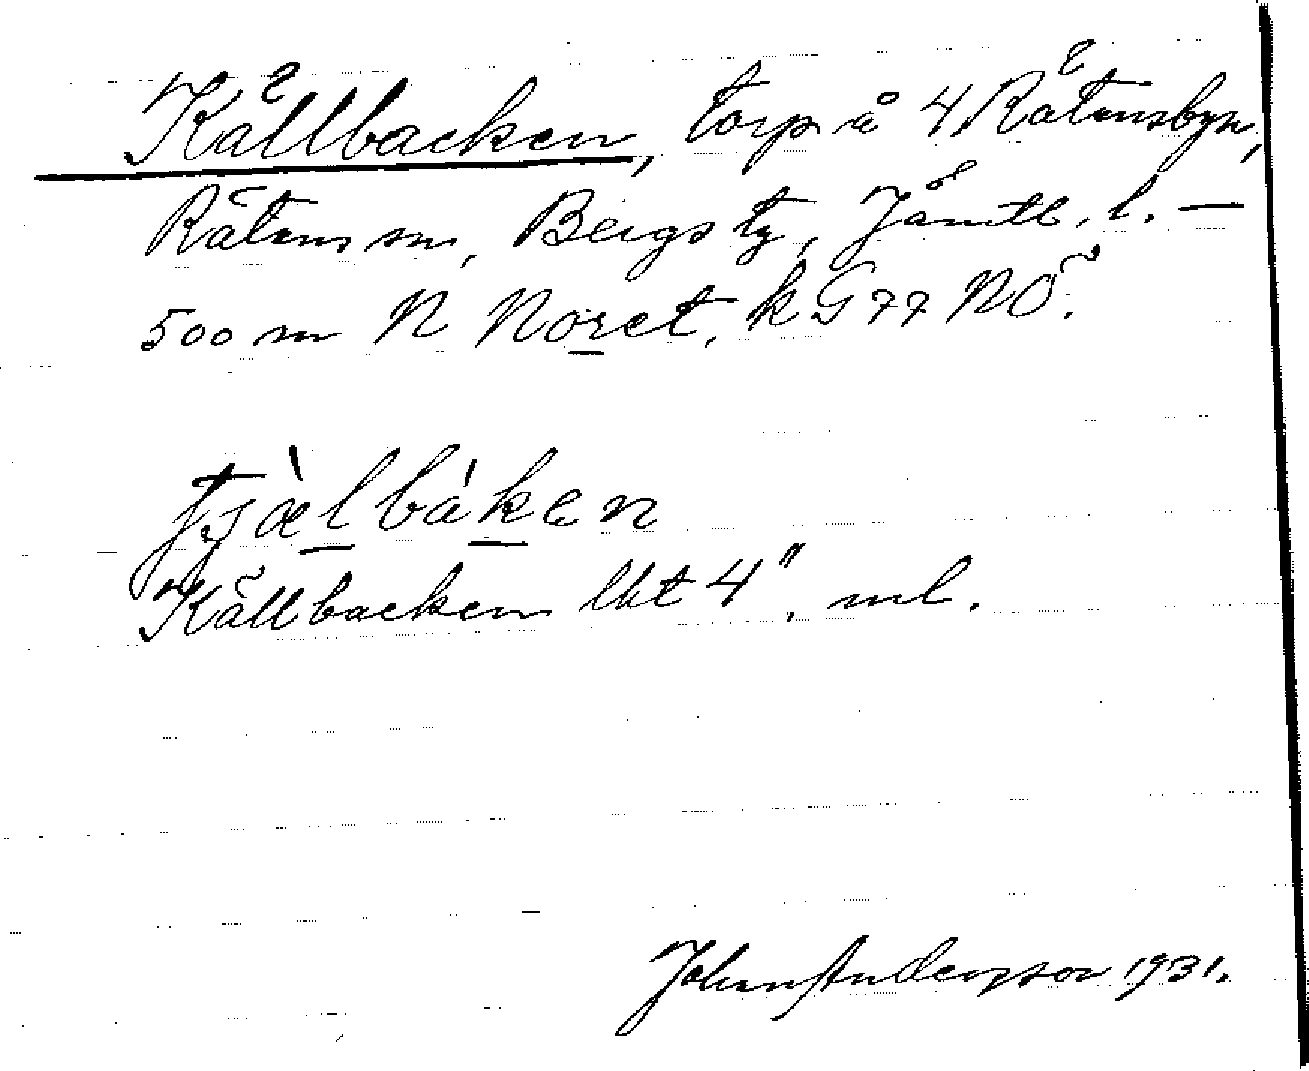 Källbacken, torp å 4 Rätansbyn,
Rätans sn, Bergs tg, Jämtl. l. —
500 m N Noret. k G 77 NÖ.
tjæ̀lbáken
Källbacken lht 4". ml.
John Andersson 1931.